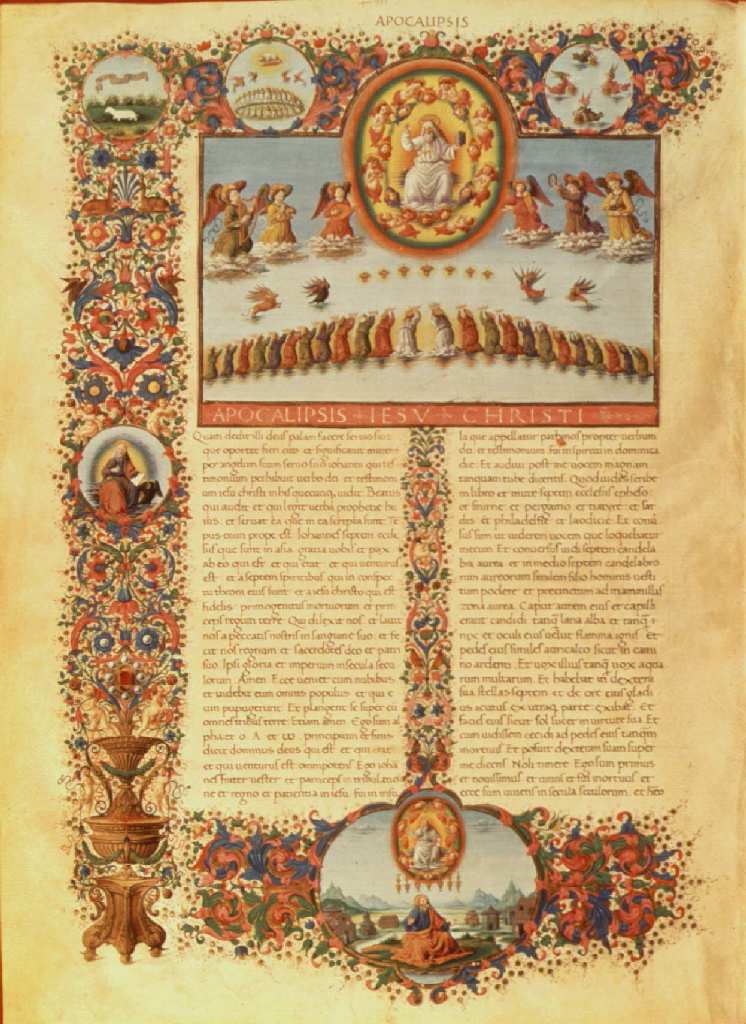 APOCALIPSIS
APOCALIPSIS IESV CHRISTI
Quam dedit illi deus palam facere servis suis
que oportet fieri cito et significavit mittens
per angelum suum servo suo iohanni qui testi
monium perhibuit verbo dei et testimoni
um iesu christi in his quecunq; vidit. Beatus
qui audit et qui legit verba prophetie hu
ius et servat ea que in ea scripta sunt. Te
pus enim prope est. Iohannes septem eccle
siis que sunt in asia gratia vobis et pax
ab eo qui est et qui erat et qui venturus
est et a septem spiritibus qui in conspec
tu throni eius sunt et a iesu christo qui est
fidelis primogenitus mortuorum et prin
ceps regum terre. Qui dilexit nos et lavit
nos a peccatis nostris in sanguine suo et fe
cit nos regnum et sacerdotes deo et patri
suo. Ipsi gloria et imperium in secula secu
lorum. Amen. Ecce veniet cum nubibus
et videbit eum omnis populus et qui e
um pupugerunt. Et plangent se super eu
omnes tribus terre. Etiam. Amen. Ego sum al
pha et o. A. et ω. principium et finis
dicit dominus deus qui est et qui erat
et qui venturus est omnipotens. Ego ioha
nes frater vester et particeps in tribulatio
ne et regno et patientia in iesu. Fui in insu
la que appellatur pathmos propter verbum
dei et testimonium. Fui in spiritu in dominica
die. Et audivi post me vocem magnam
tanquam tube dicentis. Quod vides scribe
in libro et mitte septem ecclesiis epheso
et smirne et pergamo et tiatyre et sar
dis et philadelfie et laodicie. Et conver
sus sum ut viderem vocem que loquebatur
mecum. Et conversus vidi septem candela
bra aurea et in medio septem candelabro
rum aureorum similem filio hominis vesti
tum podere et precinctum ad mamillas
zona aurea. Caput autem eius et capilli
erant candidi tanq lana alba et tanq
nix et oculi eius velut flamma ignis. Et
pedes eius similes auricalco sicut in cami
no ardenti. Et vox illius tanq vox aqua
rum multarum. Et habebat in dextera
sua stellas septem et de ore eius gladi
us acutus ex utraq parte exibat. Et
facies eius sicut sol lucet in virtute sua. Et
cum vidissem cecidi ad pedes eius tanqm
mortuus. Et posuit dexteram suam super
me dicens. Noli timere. Ego sum primus
et novissimus et vivus et fui mortuus et
ecce sum vivens in secula seculorum. et habeo